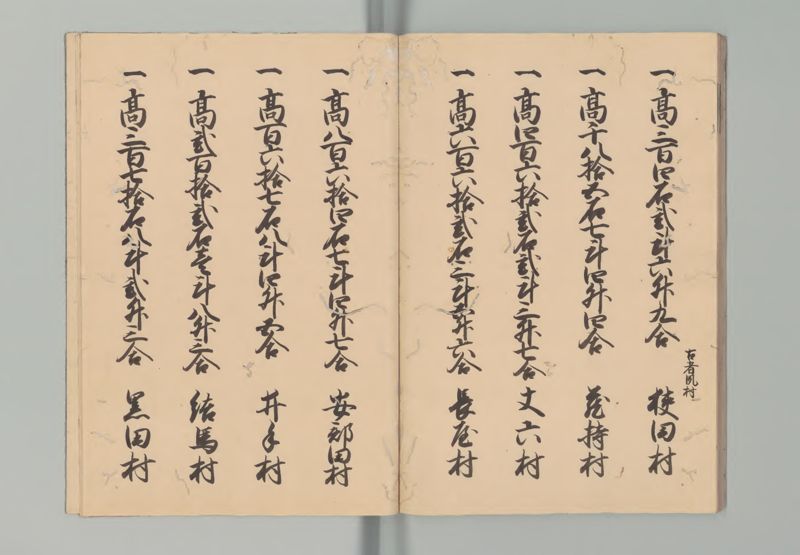 一 高三百四石弐斗六升九合
古者夙村
狭田村
一 高千八拾五石七斗四升四合 蔵持村
一 高四百六拾弐石弐斗三升七合 丈六村
一 高六百六拾弐石三斗五升六合 長屋村
一 高八百六拾四石七斗四升七合 安部田村
一 高百六拾七石八斗四升五合 井手村
一 高弐百拾弐石壱斗八升三合 結馬村
一 高三百七拾石八斗弐升三合 黒田村